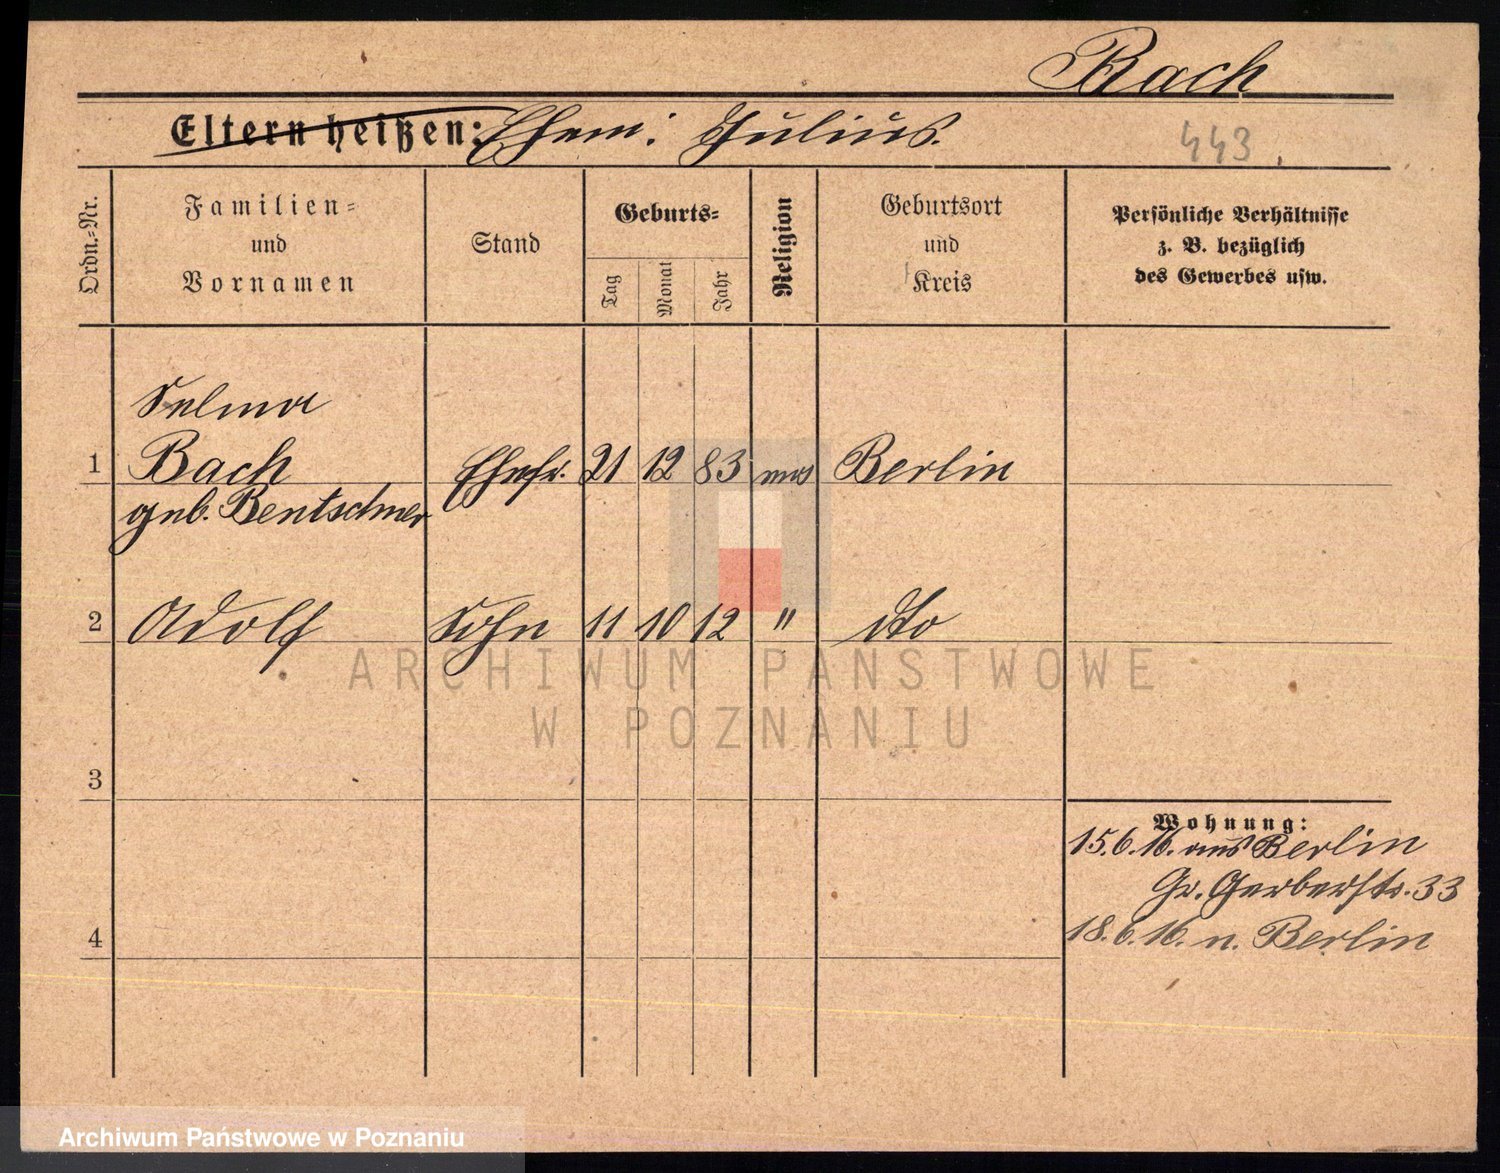 Bach
Eltern heißen: Ehem: Julius.
443
Ordn.-Nr.
Familien-
und
Vornamen
Stand
Geburts-
Tag
Monat
Jahr
Religion
Geburtsort
und
Kreis
Persönliche Verhältnisse
z. B. bezüglich
des Gewerbes usw.
Selma
1 Bach Ehefr. 21 12 83 mos Berlin
geb. Bentschner
2 Adolf Sohn 11 10 12 " dto
ARCHIWUM PAŃSTWOWE
W POZNANIU
3
Wohnung:
15.6.16. aus Berlin
Gr. Gerberstr. 33
4
18.6.16. n. Berlin
Archiwum Państwowe w Poznaniu